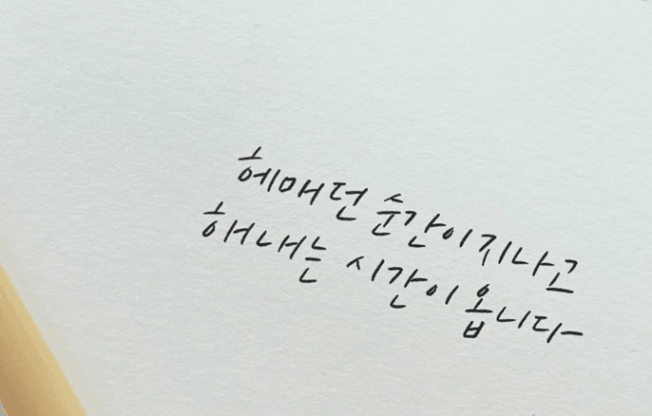 헤매던 순간이 지나고
해내는 시간이 옵니다